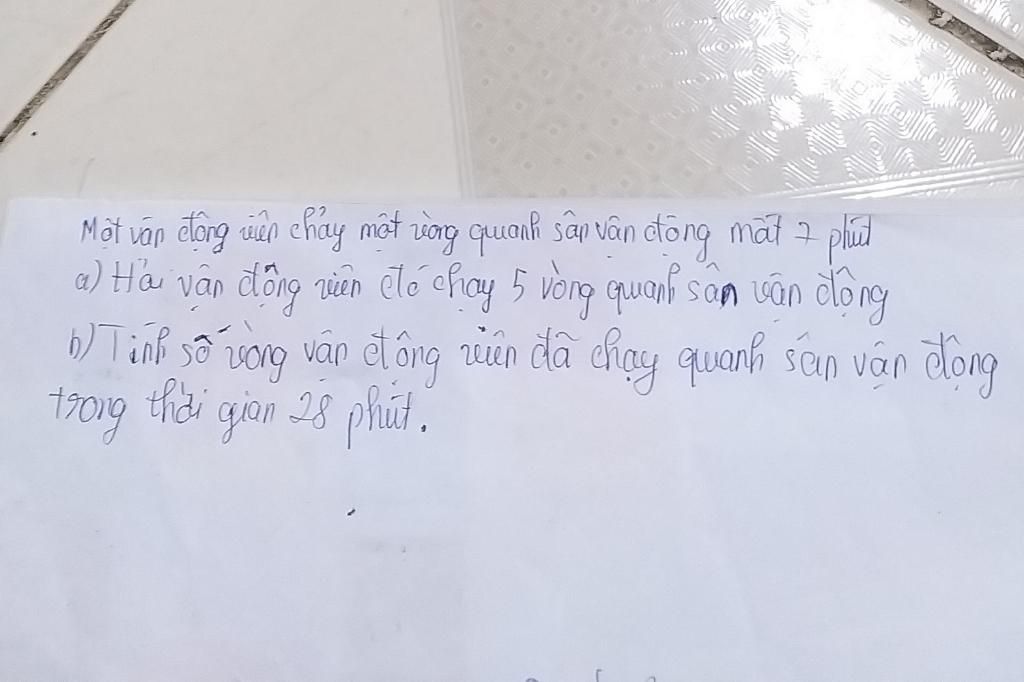 Một vận động viên chạy một vòng quanh sân vận động mất 7 phút
a) Hỏi vận động viên đó chạy 5 vòng quanh sân vận động
b) Tính số vòng vận động viên đã chạy quanh sân vận động
trong thời gian 28 phút.